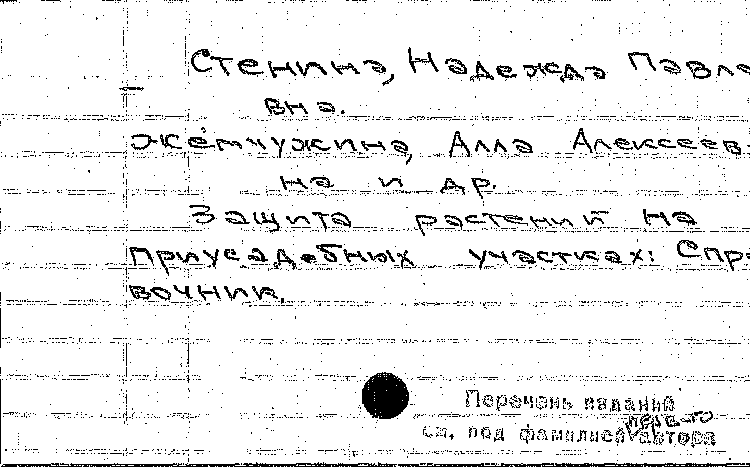 Стенина, Надежда Павло
вна.
Жемчужина, Алла Алексеев-
на и др.
Защита растений на
приусадебных участках: Спра
вочник.
Перечень изданий
перв-го
см. под фамилией автора